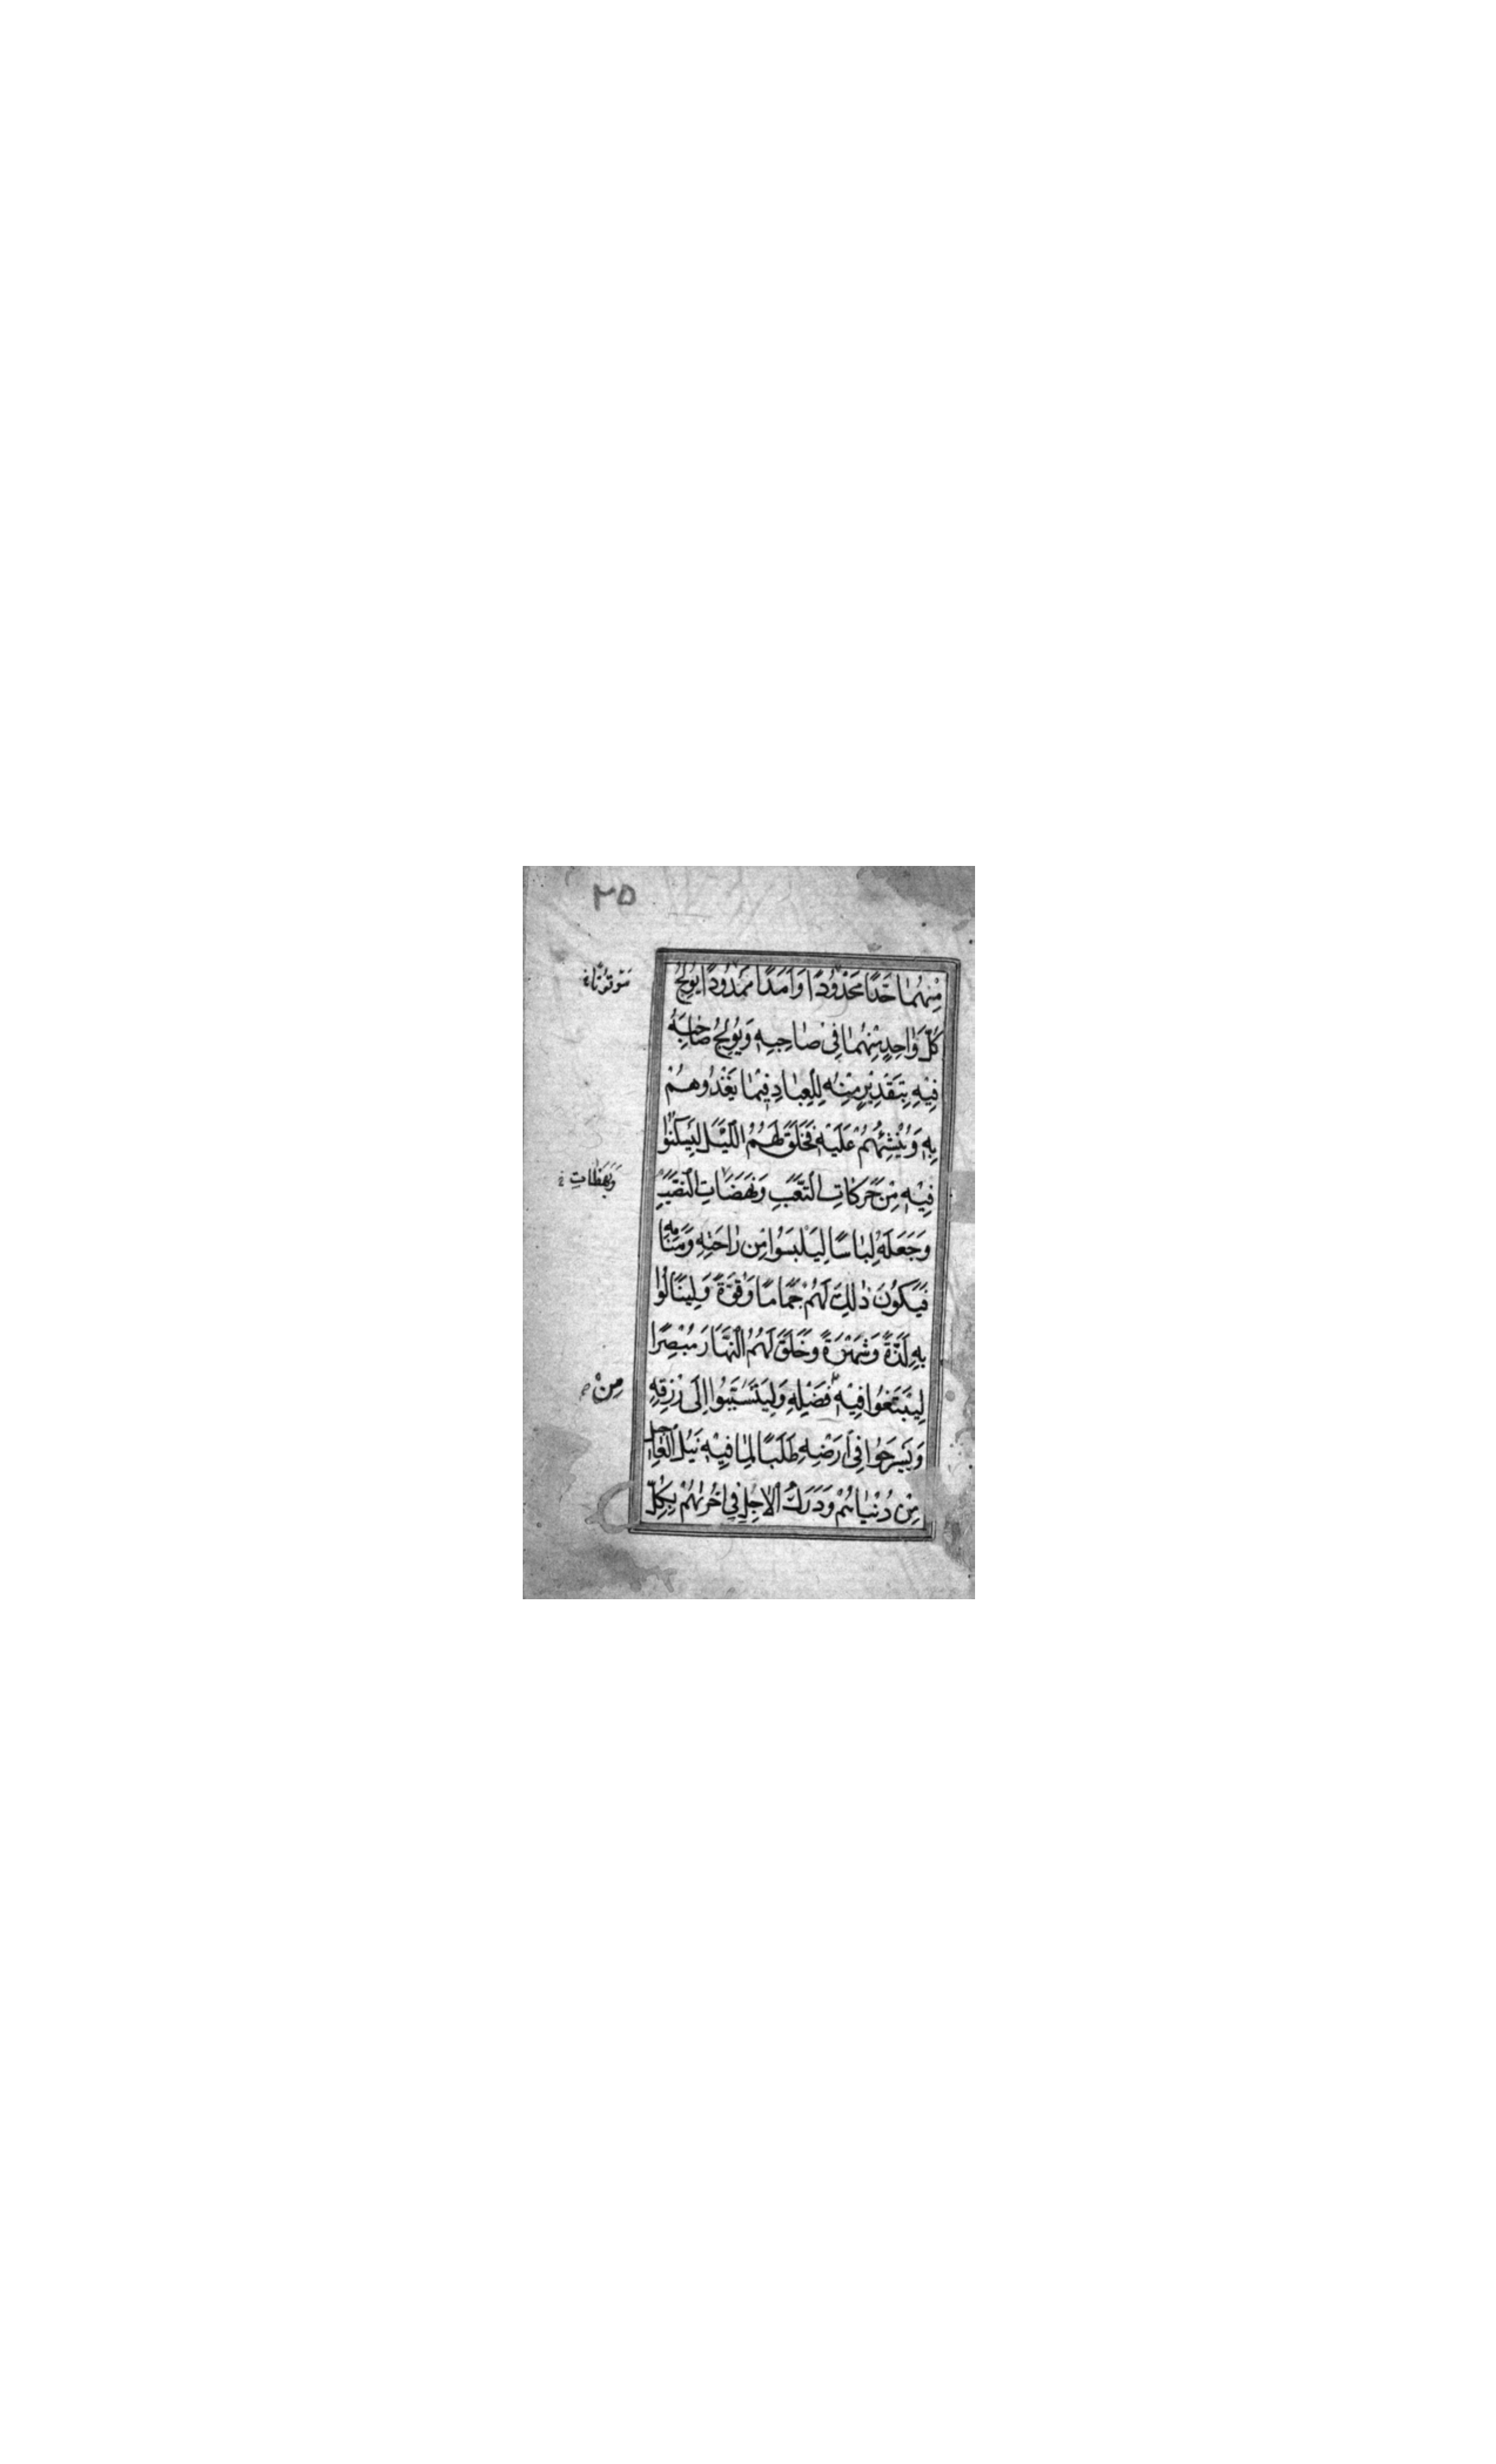 ۲۵
مِنْهُمٰا حَدًّا مَحْدُوْدًا وَاَمَدًا مَمْدُودًا يُوْلِجُ
مَوْقُوْتًا
كُلَّ وٰاحِدٍ مِنْهُمٰا فِىْ صٰاحِبِهٖ وَيُوْلِجُ صٰاحِبَهُ
فِيْهِ بِتَقْدِيْرٍ مِنْهُ لِلْعِبٰادِ فِيْمٰا يَغْذُوهُمْ
بِهٖ وَيُنْشِئُهُمْ عَلَيْهِ فَخَلَقَ لَهُمُ اللَّيْلَ لِيَسْكُنُوْا
فِيْهِ مِنْ حَرَكٰاتِ التَّعَبِ وَنَهَضٰاتِ النَّصَبِ
وَبَهَظٰاتِ
وَجَعَلَهُ لِبٰاسًا لِيَلْبَسُوْا مِنْ رٰاحَتِهٖ وَمَنٰامِهٖ
فَيَكُوْنَ ذٰلِكَ لَهُمْ جَمٰامًا وَقُوَّةً وَلِيَنٰالُوْا
بِهٖ لَذَّةً وَشَهْوَةً وَخَلَقَ لَهُمُ النَّهٰارَ مُبْصِرًا
لِيَبْتَغُوْا فِيْهِ فَضْلِهٖ وَلِيَتَسَبَّبُوْا اِلٰى رِزْقِهٖ
مِنْ
وَيَسْرَحُوْا فِىْ اَرْضِهٖ طَلَبًا لِمٰا فِيْهِ نَيْلُ الْعٰاجِلِ
مِنْ دُنْيٰاهُمْ وَدَرَكُ الْاٰجِلِ فِىْ اُخْرٰيهُمْ بِكُلِّ